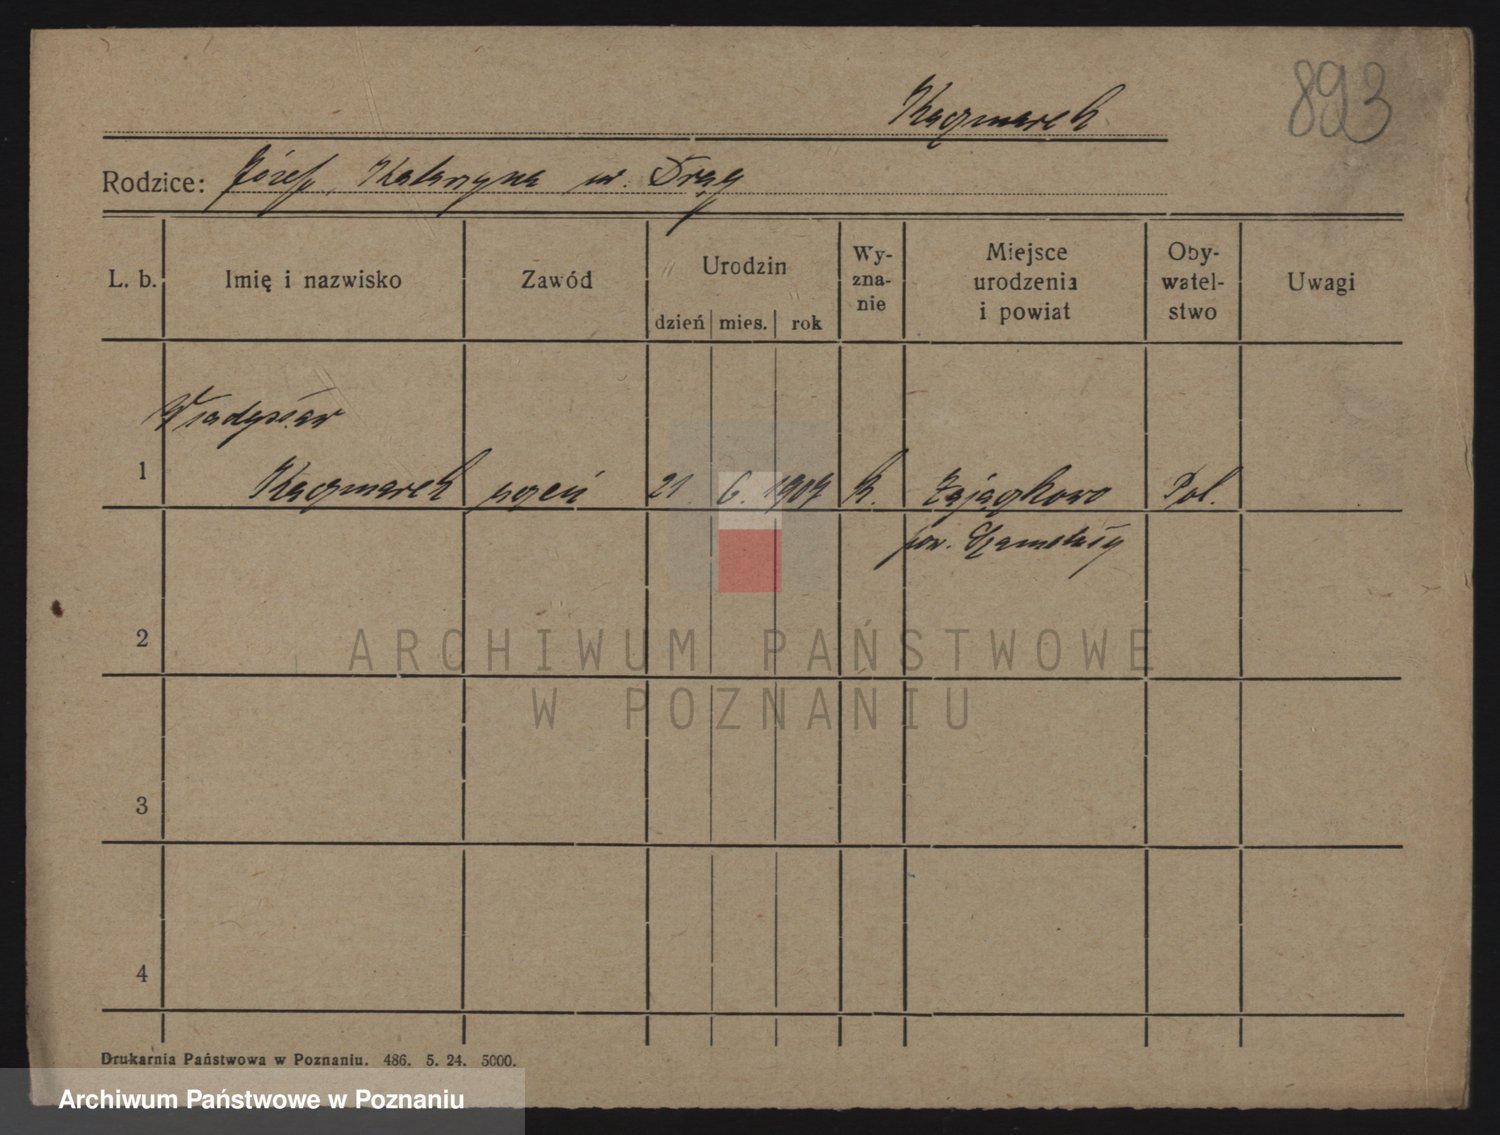 893
Kaczmarek
Rodzice: Józef, Katarzyna ur. Drąg
L. b. Imię i nazwisko Zawód Urodzin dzień mies. rok Wyznanie Miejsce urodzenia i powiat Obywatelstwo Uwagi
Władysław
1 Kaczmarek uczeń 21. 6. 1907 k. Zajączkowo Pol.
pow. Szamotuły
2
3
4
ARCHIWUM PAŃSTWOWE
W POZNANIU
Drukarnia Państwowa w Poznaniu. 486. 5. 24. 5000.
Archiwum Państwowe w Poznaniu